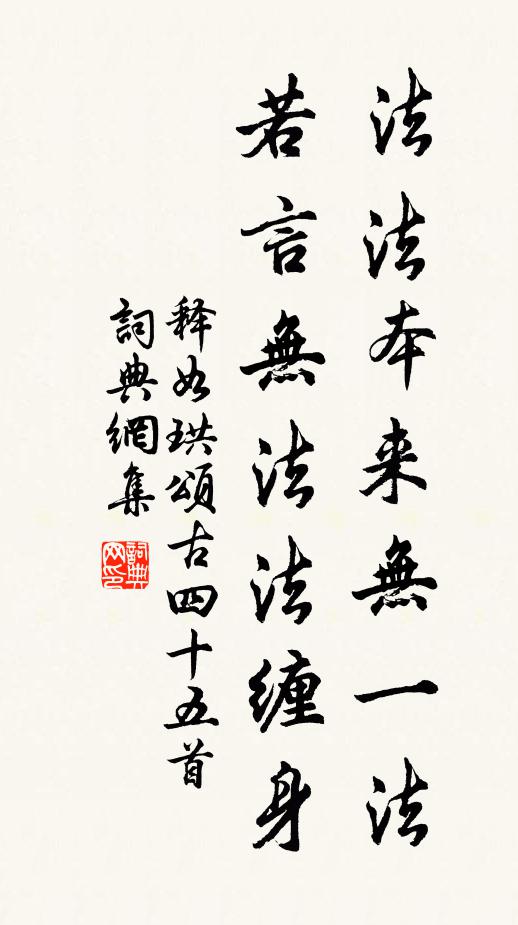 法法本来無一法
若言無法法纏身
释如珙頌古四十五首
詞典網集
詞典网印